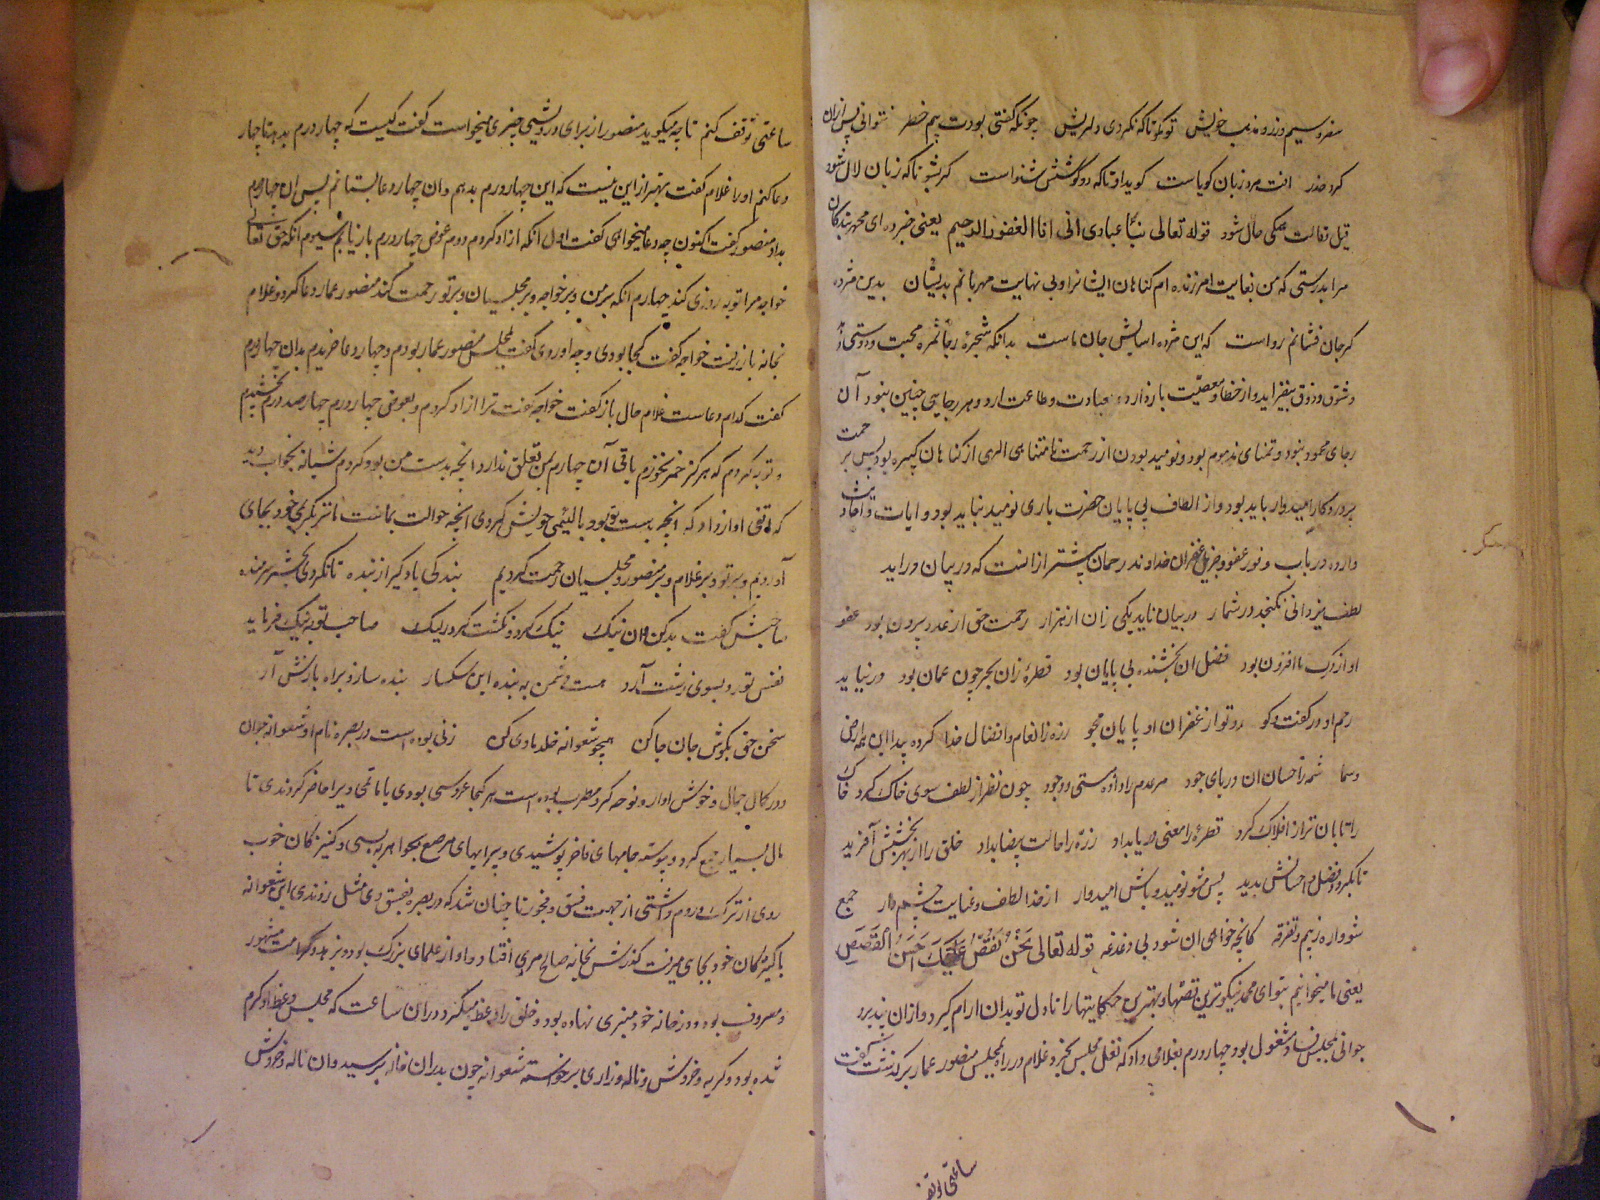 سفر و سیم و زر و مذهب خویش تو مگو تا که نکردی دلریش چونکه گفتی بودت بیم خطر نتوانی پس ازان
کرد حذر افت مرد زبان گویاست گوید او تا که دو گوشش شنواست کر شو تا که زبان لال شود
قیل و قالت همگی حال شود قوله تعالی نبّأ عبادی انی انا الغفور الرحیم یعنی خبر ده ای محمد بندگان
مرا بدرستی که من بغایت امرزنده ام گناهان ایشانرا و بی نهایت مهربانم بدیشان بدین مژده
گر جان فشانم رواست که این مژده اسایش جان ماست بدانکه شجره رجا ثمره محبت و دوستی
و شوق و ذوق بیفزاید و از خطا و معصیت باز دارد و بعبادت و طاعت ارد و هر رجایی چنین نبود آن
رجای محمود نبود و تمنای مذموم بود و نومید بودن از رحمت نامتناهی الهی از گناهان کبیره بود پس بر رحمت
پروردگار امیدوار باید بود و از الطاف بی پایان حضرت باری نومید نباید بود و ایات و احادیث
وارده در باب وفور عفو و غفران خداوند رحمان بیشتر از انست که در بیان دراید
لطف یزدانی نگنجد در شمار در بیان ناید یکی زان از هزار رحمت حق از عدد بیرون بود عفو
او از درک ما افزون بود فضل ان بخشنده بی پایان بود قطرهٔ زان بحر چون عمان بود در نیاید
رحم او در گفت و گو رو تو از غفران او پایان مجو ذره زانعام و افضال خدا کرده پیدا این همه ارض
و سما شمه زاحسان ان دریای جود مر عدم را داده هستی و وجود چون نظر از لطف سوی خاک کرد خاک
را تابان تر از افلاک کرد قطرهٔ را معنی دریا بداد ذرّه را حالت بیضا بداد خلق را از بهر بخشش آفرید
تا بگیرد فضل و احسانش پدید پس مشو نومید و باش امیدوار از خدا لطف و عنایت چشم دار جمع
شو واره ز بیم و تفرقه کانچه خواهی ان شود بی دغدغه قوله تعالی نَحْنُ نَقُصُّ عَلَیکَ اَحسَنَ الْقَصَصِ
یعنی ما میخوانیم بتو ای محمد نیکوترین قصها و بهترین حکایتها را تا دل تو بدان ارام گیرد و ازان پند پذیرد
جوانی بمجلس فساد مشغول بود چهار درم بغلامی داد که نقل مجلس بخرد غلام در راه بمجلس منصور عمار بگذشت گفت
ساعتی توقف
ساعتی توقف کنم تا چه میگوید منصور از برای درویشی چیزی میخواست گفت کیست که چهار درم بدهد تا چهار
دعا کنم اورا غلام گفت بهتر از این نیست که این چهار درم بدهم و ان چهار دعا بستانم پس ان چهار درم
بداد منصور گفت اکنون چه دعا میخواهی گفت اول انکه ازاد گردم دوم عوض چهار درم باز یابم سیوم انکه حق تعالی
خواجه مرا توبه روزی کند چهارم انکه بر من و بر خواجه و بر مجلسیان و بر تو رحمت کند منصور عمار دعا کرد و غلام
بخانه باز رفت خواجه گفت کجا بودی و چه اوردی گفت بمجلس منصور عمار بودم و چهار دعا خریدم بدان چهار درم
گفت کدام دعاست غلام حال باز گفت خواجه گفت ترا ازاد کردم و بعوض چهار درم چهارصد درم بخشیدم
و توبه کردم که هرگز خمر نخورم باقی آن چهارم بمن تعلق ندارد انچه بدست من بود کردم شبانه بخواب دید
که هاتفی اواز داد که انچه بدست تو بود با لئیمی خویش کردی انچه حوالت بماست ما نیز بکریمی خود بجای
آوردیم و بر تو و بر غلام و بر منصور و مجلسیان رحمت کردیم بندگی یاد گیر از بنده تا نگردی بحشر شرمنده
صاحبش گفت بد کن و ان نیک نیک کرد و نگشت گرد ولیک صاحب تو به نیک فرماید
نفس تو رو بسوی زشت آرد هست دشمن به بنده این سگسار بنده ساز و براه بازش آر
سخن حق بگوش جان جا کن همچو شعوانه خلد ماوی کن زنی بوده است در بصره نام او شعوانه جوان
و در کمال جمال و خوش اواز و نوحه گر و مطرب بوده است هر کجا عروسی بودی یا ماتمی ویرا حاضر کردندی تا
مال بسیار جمع کرد و پیوسته جامهای فاخر پوشیدی و پیرایهای مرصع بجواهر بستی و کنیزکان خوب
روی از ترک و روم داشتی از جهت فسق و فجور تا چنان شد که در بصره بفسق وی مثل زدندی این شعوانه
با کنیزکان خود بجای میرفت گذرش بخانه صالح مری افتاد و او از علمای بزرگ بود و بزهد و کرامت مشهور
و معروف بود و در خانه خود منبری نهاده بود و خلق را وعظ میگفت در ان ساعت که مجلس وعظ او گرم
شده بود و گریه و خروش و ناله و زاری برخواسته شعوانه چون بدران خانه برسید و ان ناله و خروش